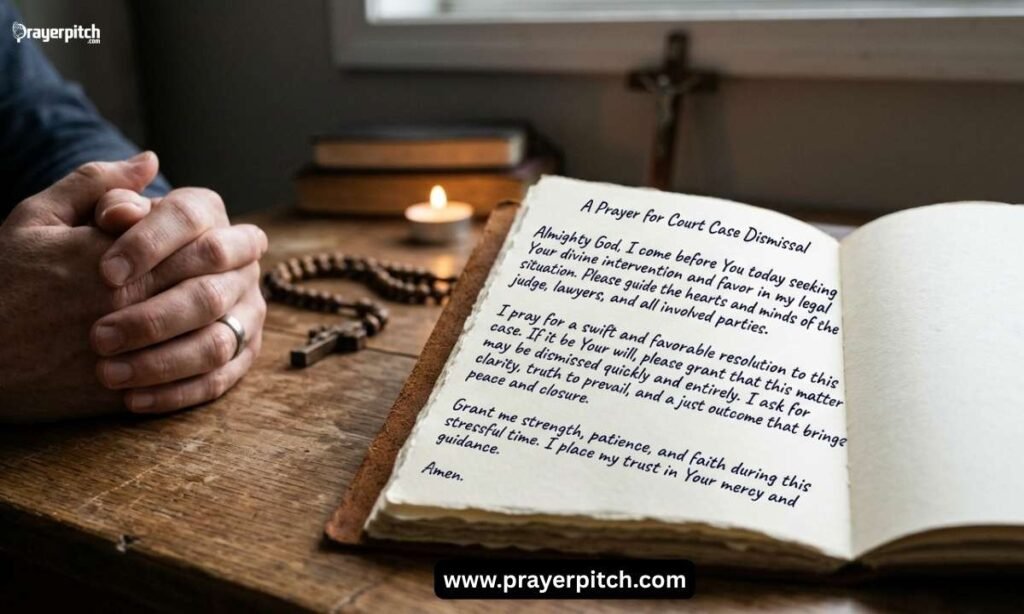 Prayerpitch
.com
A Prayer for Court Case Dismissal
Almighty God, I come before You today seeking
Your divine intervention and favor in my legal
situation. Please guide the hearts and minds of the
judge, lawyers, and all involved parties.
I pray for a swift and favorable resolution to this
case. If it be Your will, please grant that this matter
may be dismissed quickly and entirely. I ask for
clarity, truth to prevail, and a just outcome that brings
peace and closure.
Grant me strength, patience, and faith during this
stressful time. I place my trust in Your mercy and
guidance.
Amen.
www.prayerpitch.com